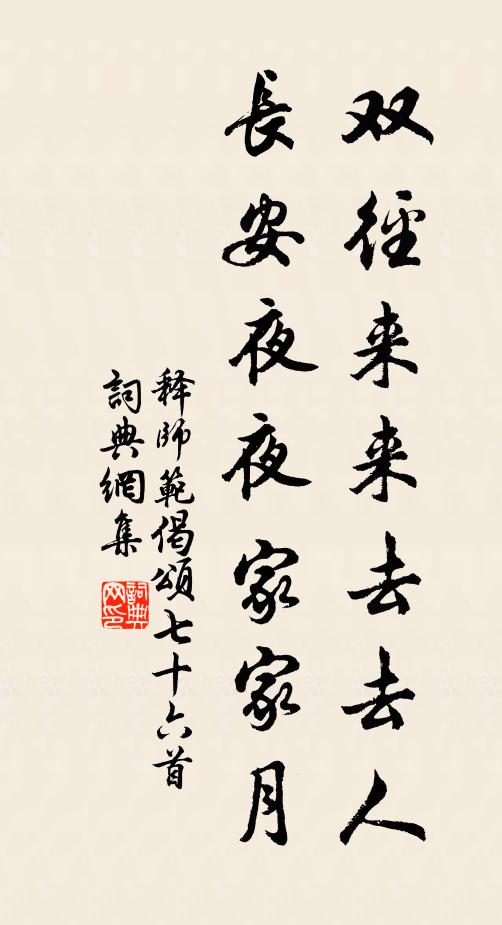 双徑来来去去人
長安夜夜家家月
释師範偈頌七十六首
詞典網集
詞典网印